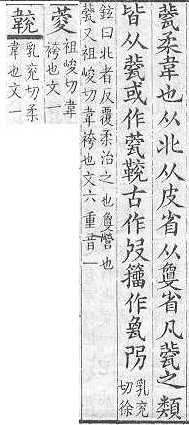 㼱柔韋也从北从皮省从敻省凡㼱之類
皆从㼱或作古作籀作
乳兖
切徐
鉉曰北者反覆柔治之也敻營也
㼱又祖峻切韋袴也文六重音一
祖峻切韋
袴也文一
乳兖切柔
韋也文一